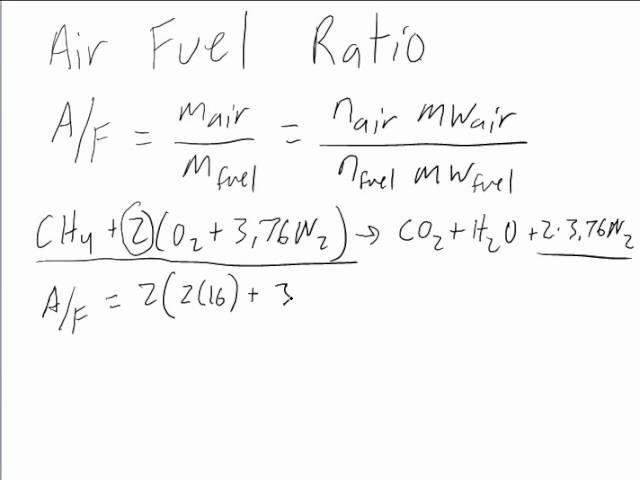 Air Fuel Ratio
A/F = m_air / m_fuel = n_air MW_air / n_fuel MW_fuel
CH4 + 2(O2 + 3,76N2) → CO2 + H2O + 2·3,76N2
A/F = 2(2(16) + 3